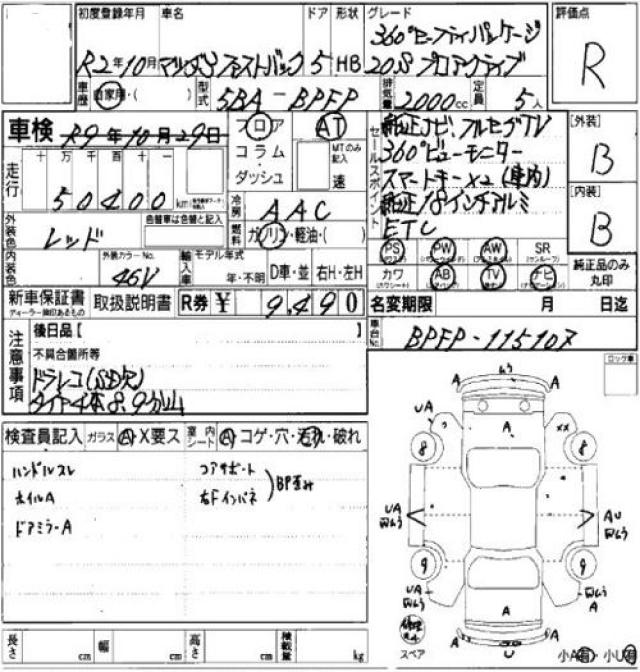 初度登録年月 車名 ドア 形状 グレード 評価点
R2年10月 マツダ3ファストバック 5 HB 360°セーフティパッケージ
20S プロアクティブ
R
車歴 自家用・( ) 型式 5BA-BPFP 排気量 2000cc 定員 5人
車検 R9年10月29日
フロア AT
コラム・ MTのみ記入
ダッシュ 速
セールスポイント
純正ナビ、フルセグTV
360°ビューモニター
スマートキー×2(車内)
純正18インチアルミ
ETC
[外装]
B
[内装]
B
走行 十 万 千 百 十 一
50400km
冷房 AAC
燃料 ガソリン・軽油・( )
外装色 レッド 色替車は色替と記入
内装色 外装カラーNo. 46V
輸入車 モデル年式 年・不明 D車・並 右H・左H
PS PW AW SR
(パワステ) (パワーウィンドウ) (アルミホイール) (サンルーフ)
カワ AB TV ナビ
(カワシート) (エアバッグ)
純正品のみ丸印
新車保証書 取扱説明書 R券 ¥ 9,490
ディーラー捺印あるもの
名変期限 月 日迄
車台No. BPFP-115107
注意事項
後日品【 】
不具合箇所等
ドラレコ(SD欠)
タイヤ4本8.9分山
ロック車
検査員記入 ガラス A・X要ス 室内シート A コゲ・穴・汚れ・破れ
ハンドルスレ
ホイルA
ドアミラーA
コアサポート
右Fインパネ
BP歪み
A A
UA A XX
8 8
UA AU
9 9
UA A
A
A A
U
スペア
小A有・小U有
長さ cm 幅 cm 高さ cm 積載量 kg